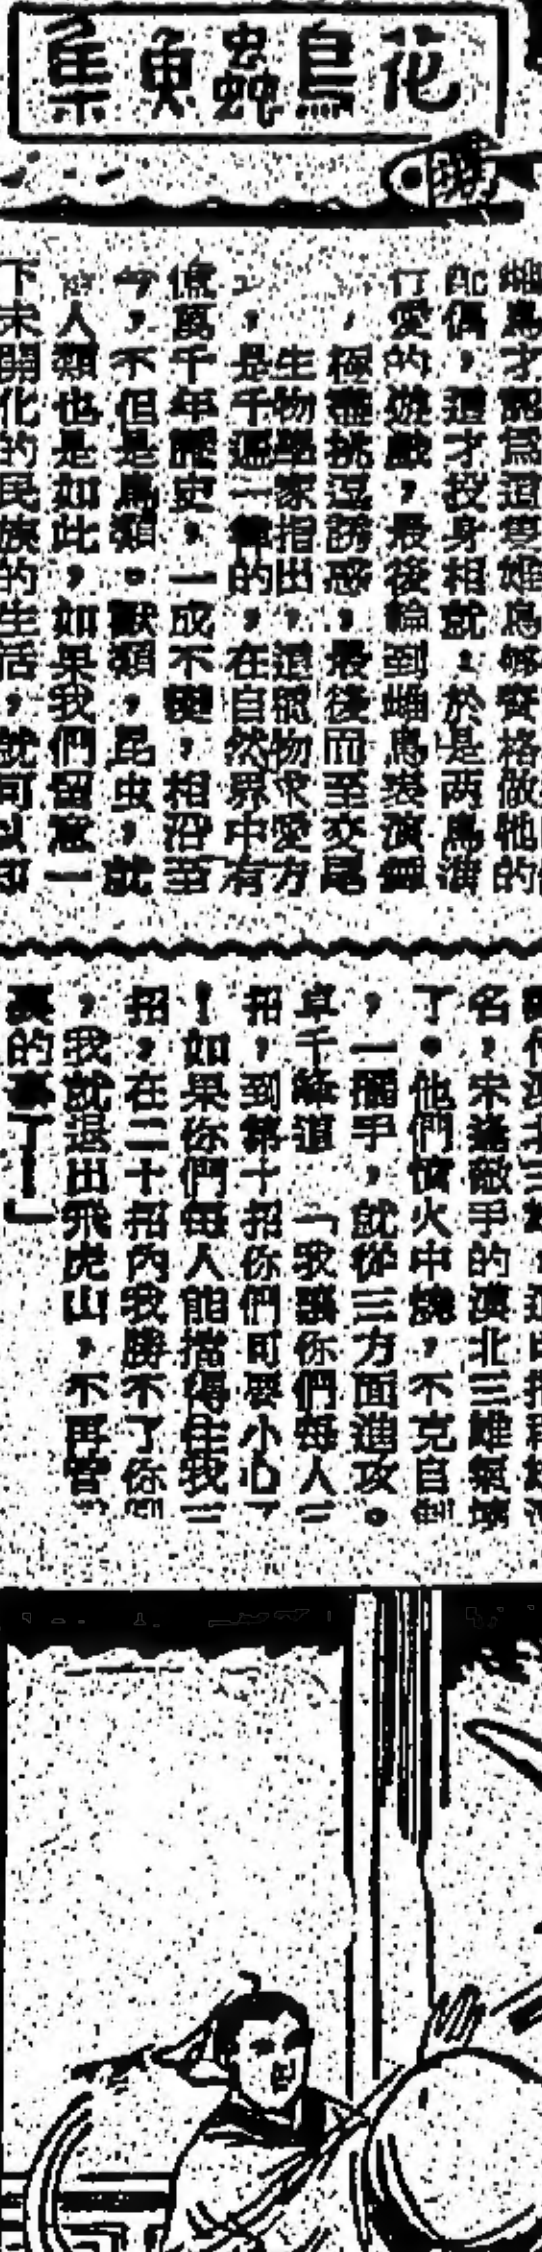 花鳥蟲魚集
雌鳥才認為這隻雄鳥夠資格做他的
配偶，這才投身相就。於是两鳥進
行愛的遊戲，最後輪到雌鳥表演舞
，極盡挑逗誘惑，最後而至交尾
生物學家指出，這種物求愛方
，是千遍一律的，在自然界中有
億萬千年歷史，一成不變，相沿至
今，不但是鳥類。獸類，昆虫，就
人類也是如此，如果我們留意一
下未開化的民族的生活，就可以知
名，宋逢敵手的漠北三雄氣
了。他們憤火中燒，不克自制
，一擺手，就從三方面進攻。
卓千峰道 「我讓你們每人三
招，到第十招你們可要小心了
！如果你們每人能擋得住我三
招，在二十招內我勝不了你們
，我就退出飛虎山，不再管
的事了！」